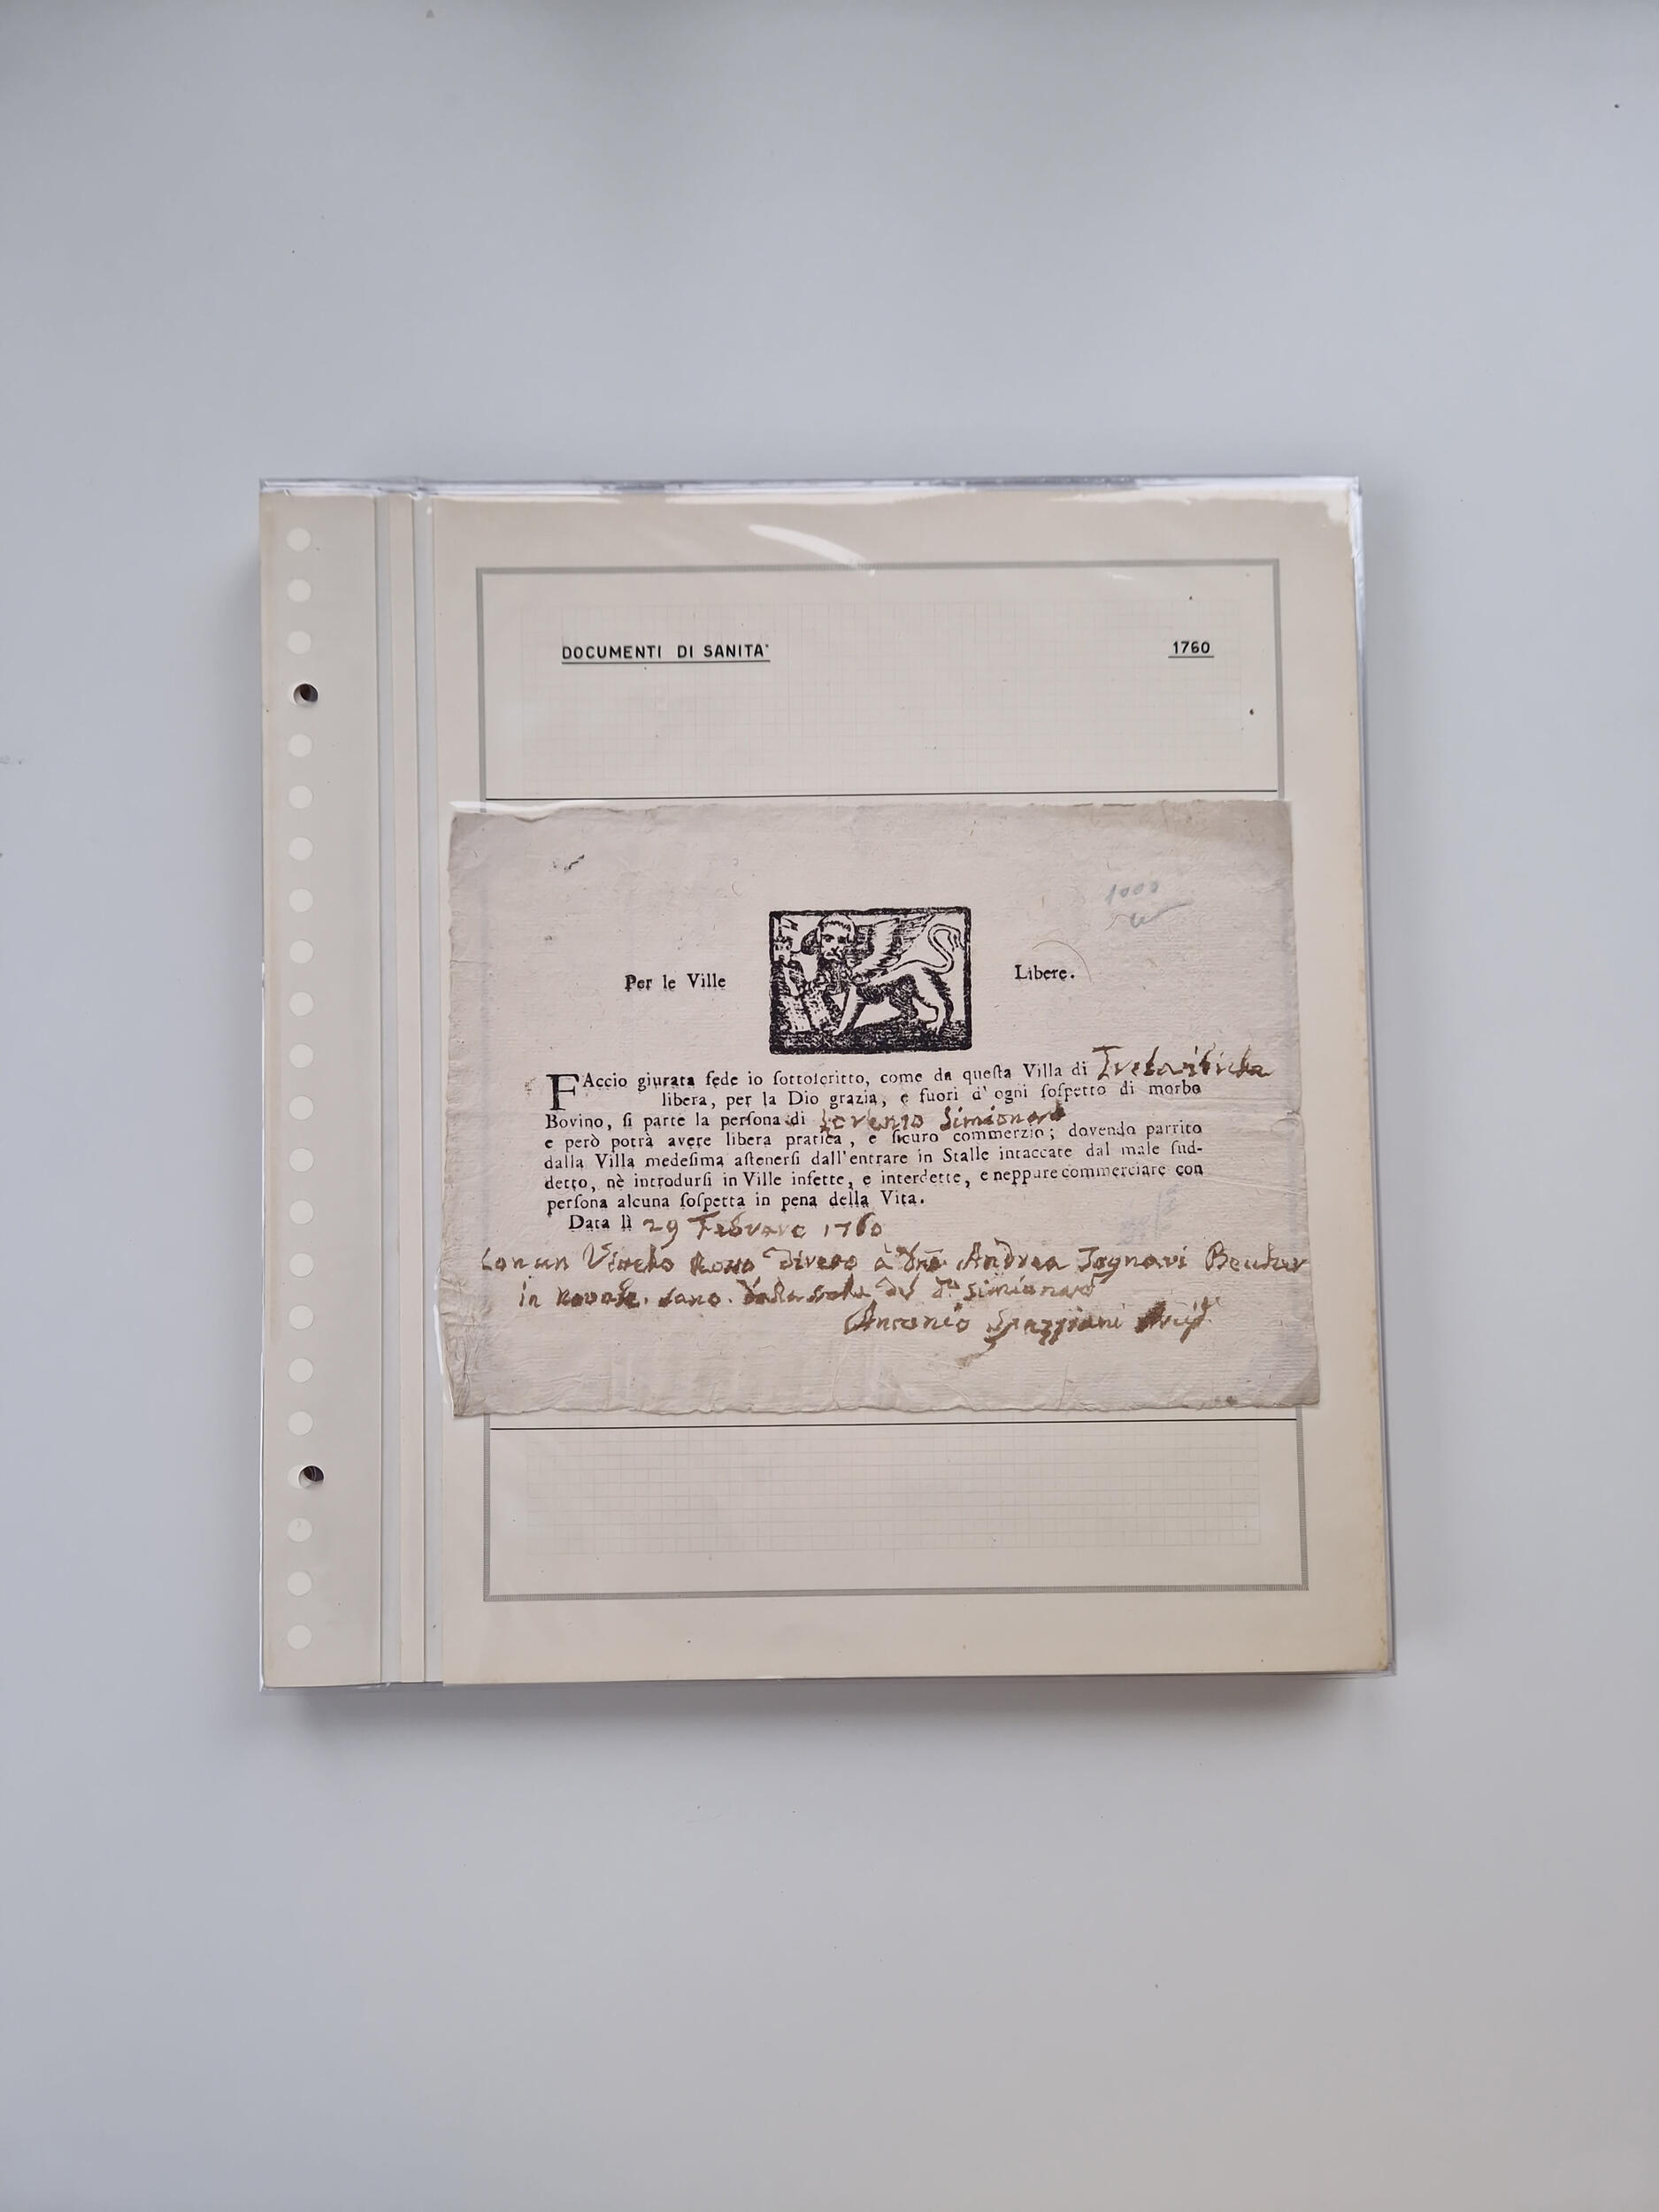 DOCUMENTI DI SANITA'
1760
1000
Per le Ville
Libere.
FAccio giurata fede io ſottoſcritto, come da queſta Villa di
libera, per la Dio grazia, e fuori d' ogni ſoſpetto di morbo
Bovino, ſi parte la perſona di Simionato
e però potrà avere libera pratica, e ſicuro commerzio; dovendo partito
dalla Villa medeſima aſtenerſi dall'entrare in Stalle intaccate dal male ſud-
detto, nè introdurſi in Ville infette, e interdette, e neppure commerciare con
perſona alcuna ſoſpetta in pena della Vita.
Data lì 29 Febraro 1760
Con un Rosso à Andrea
in
Antonio